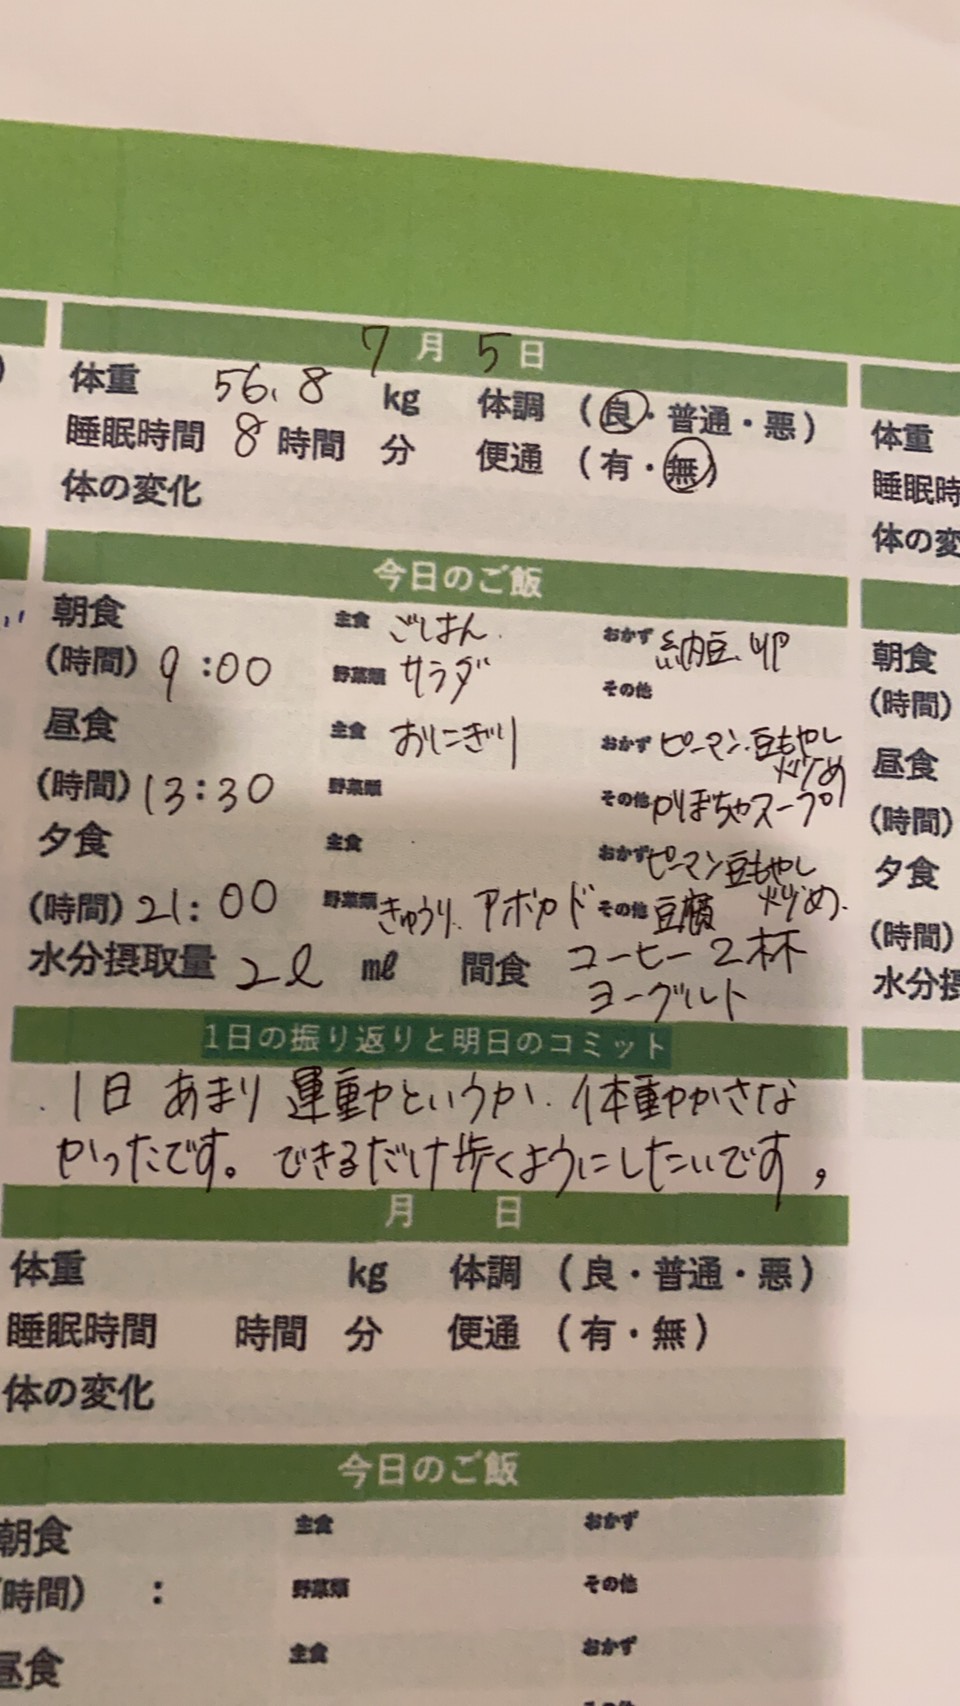 7月5日
体重 56.8 kg 体調 (良・普通・悪)
睡眠時間 8 時間 分 便通 (有・無)
体の変化
今日のご飯
朝食 主食 ごはん. おかず 納豆、卵
(時間) 9:00 野菜類 サラダ その他
昼食 主食 おにぎり おかず ピーマン・豆もやし
炒め
(時間) 13:30 野菜類 その他 かぼちゃスープ
夕食 主食 おかず ピーマン豆もやし
炒め.
(時間) 21:00 野菜類 きゅうり. アボカド その他 豆腐
水分摂取量 2ℓ mℓ 間食 コーヒー2杯
ヨーグルト
1日の振り返りと明日のコミット
1日 あまり 運動やというか、体動かさな
かったです。できるだけ歩くようにしたいです,
月 日
体重 kg 体調 (良・普通・悪)
睡眠時間 時間 分 便通 (有・無)
体の変化
今日のご飯
朝食 主食 おかず
(時間) : 野菜類 その他
昼食 主食 おかず
体重
睡眠時
体の変
朝食
(時間)
昼食
(時間)
夕食
(時間)
水分摂